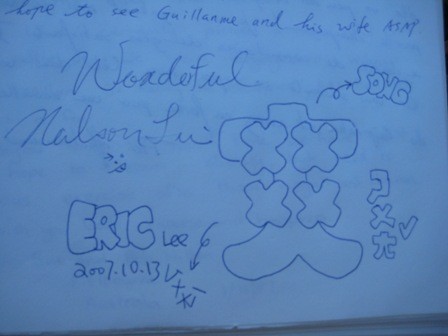 hope to see Guillanme and his wife ASAP
Wonderful
SONG
爽
ㄕㄨㄤˇ
ERIC Lee
2007.10.13